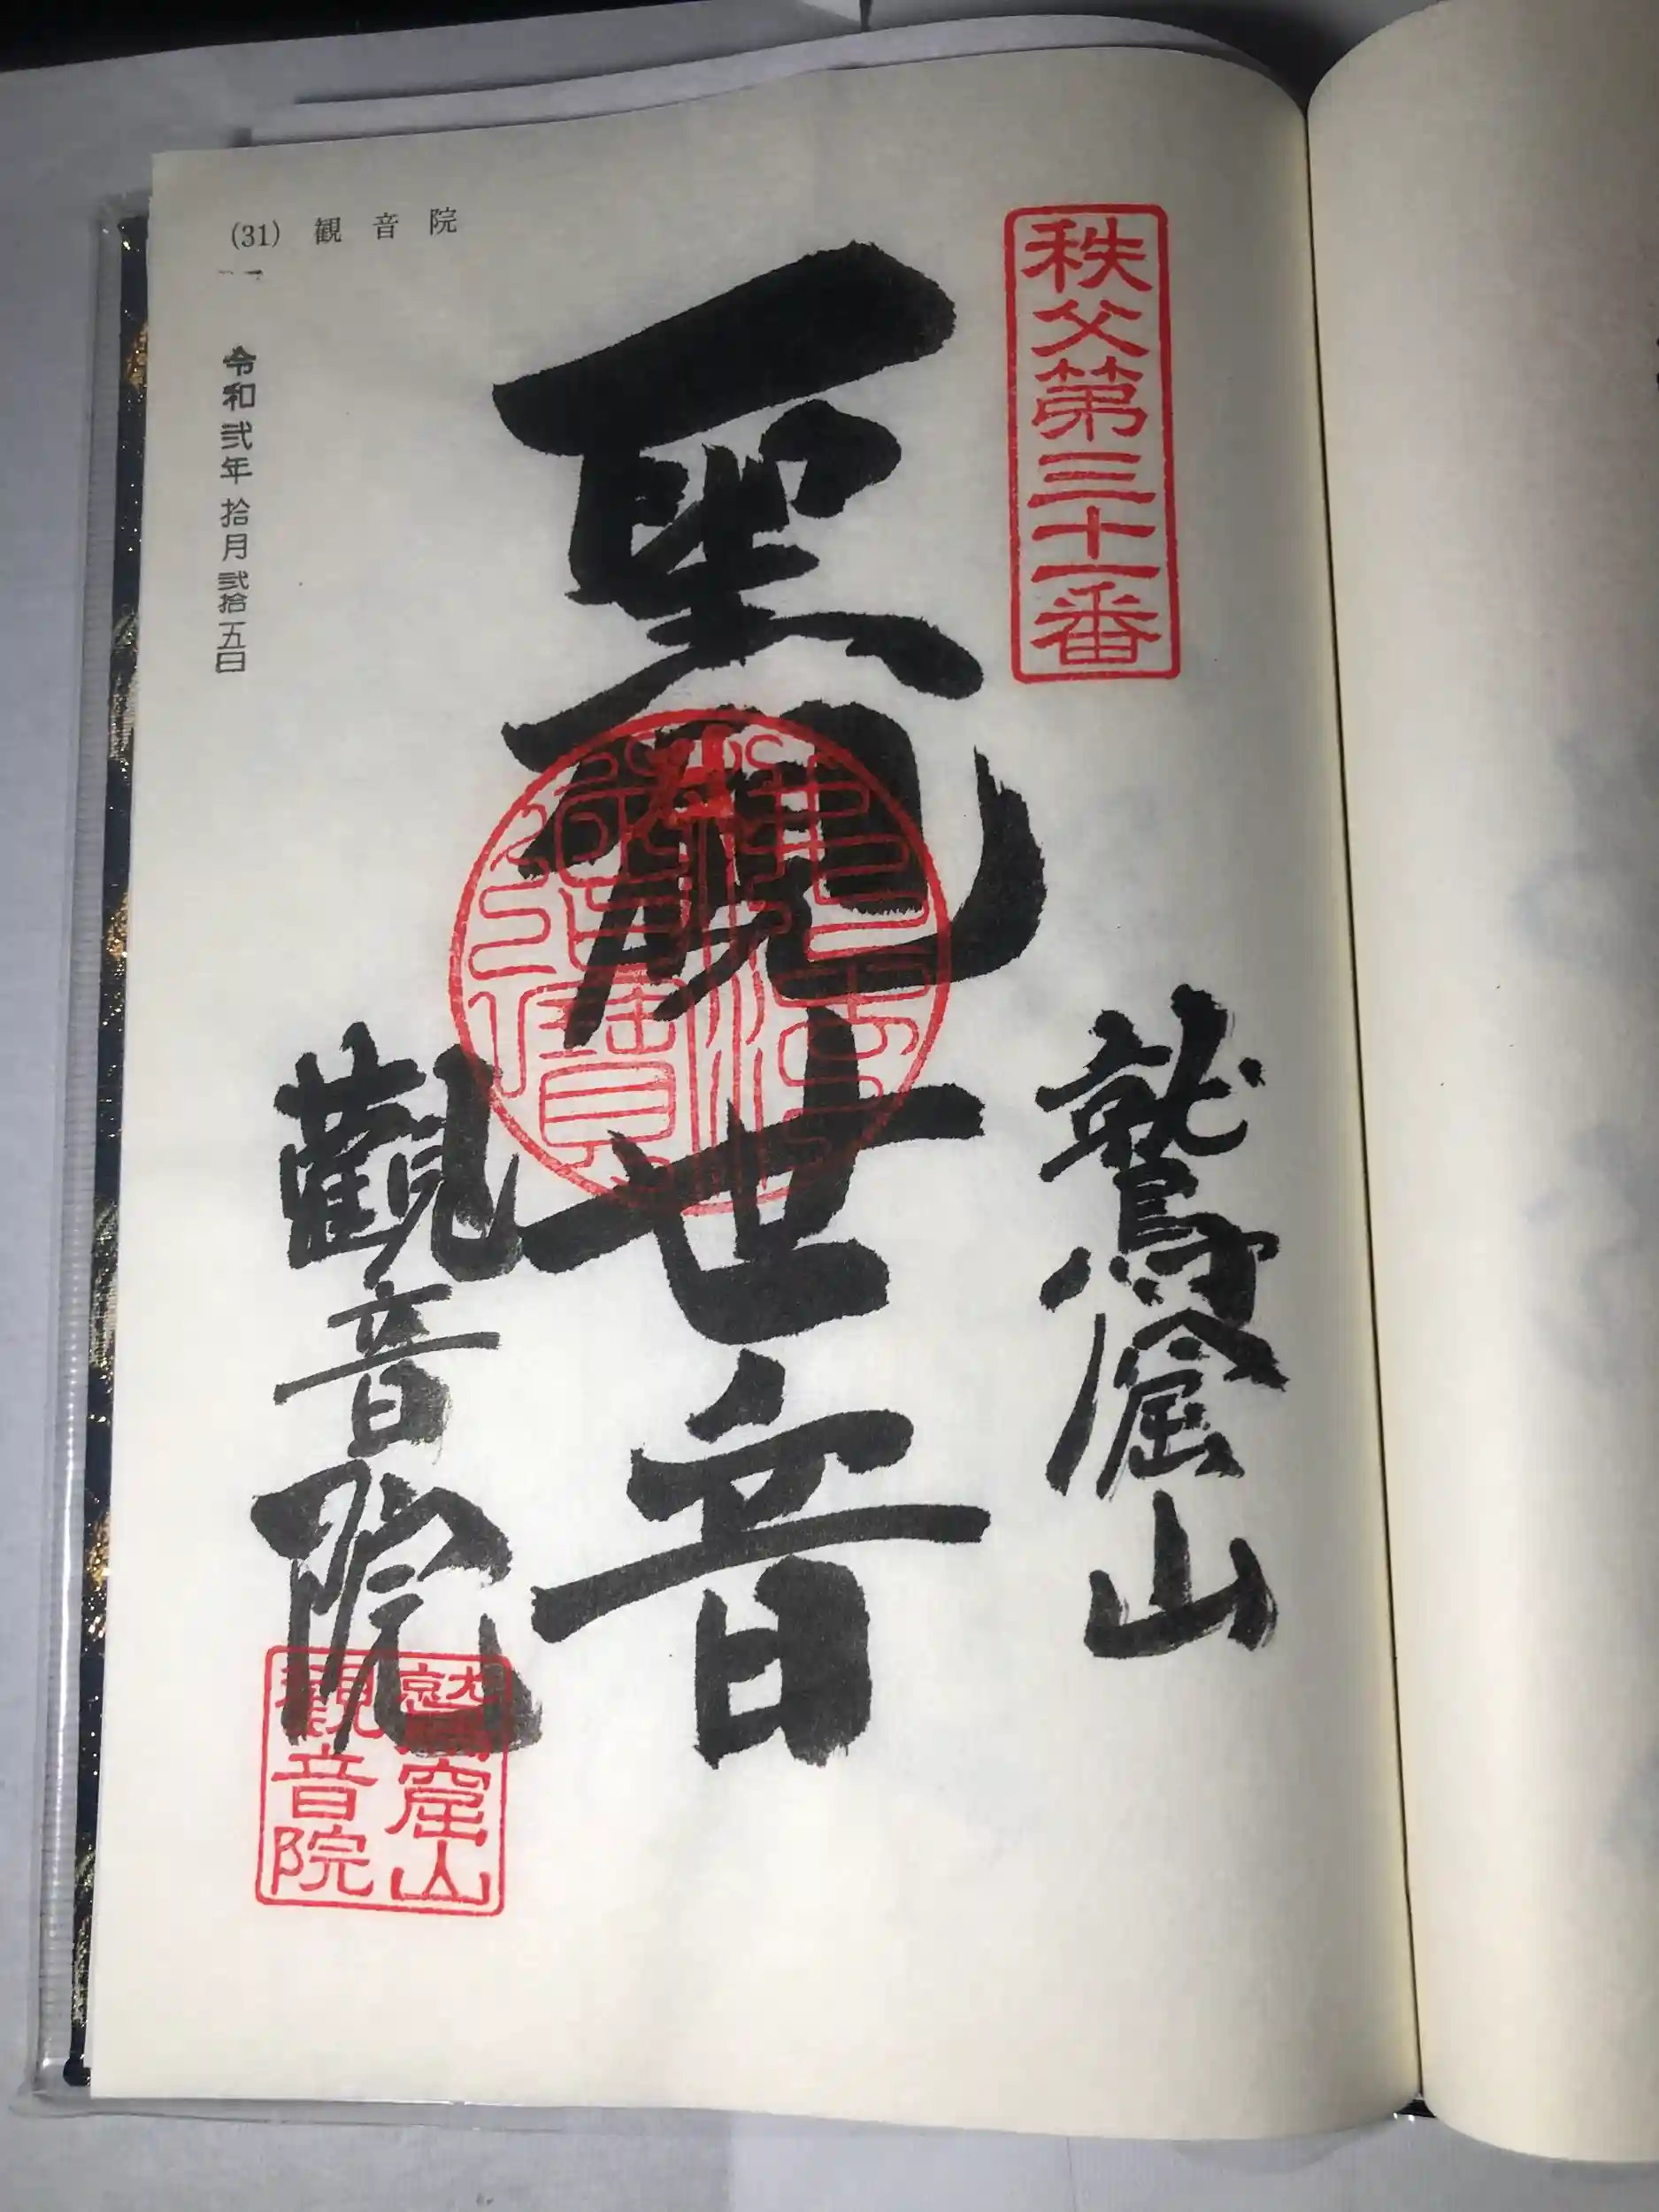 (31) 観音院
秩父第三十一番
令和弐年拾月弐拾五日
鷲窟山
聖観世音
觀音院
佛法僧寶
鷲窟山
観音院